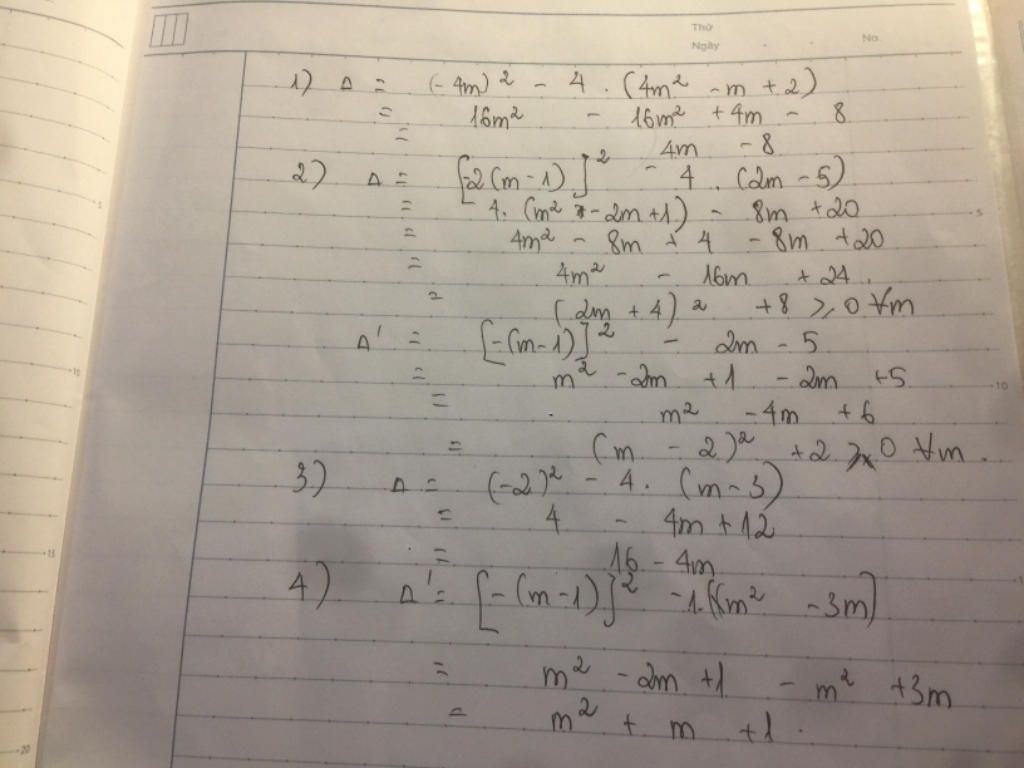 Thứ
Ngày No.
1) Δ = (-4m)² - 4 . (4m² - m + 2)
= 16m² - 16m² + 4m - 8
= 4m - 8
2) Δ = [-2(m - 1)]² - 4 . (2m - 5)
= 4. (m² - 2m + 1) - 8m + 20
= 4m² - 8m + 4 - 8m + 20
= 4m² - 16m + 24.
= (2m + 4)² + 8 ⩾ 0 ∀m
Δ' = [-(m-1)]² - 2m - 5
= m² - 2m + 1 - 2m + 5
= m² - 4m + 6
= (m - 2)² + 2 > 0 ∀m.
3) Δ = (-2)² - 4. (m - 3)
= 4 - 4m + 12
= 16 - 4m
4) Δ' = [-(m - 1)]² - 1.(m² - 3m)
= m² - 2m + 1 - m² + 3m
= m² + m + 1.
5
10
15
20
5
10